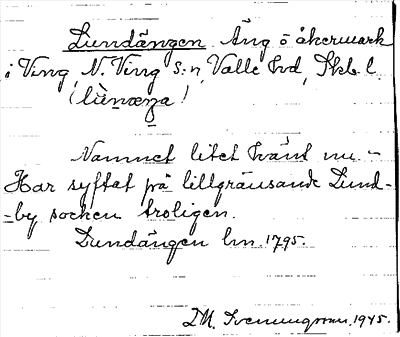 Lundängen Äng o åkermark
i Ving, N. Ving s:n, Valle hd, Skb. l.
(lùnæŋa)
Namnet litet känt nu -
Har syftat på tillgränsande Lund-
-by socken troligen.
Lundängen lm. 1795.
D.M. Svenungsson, 1945.